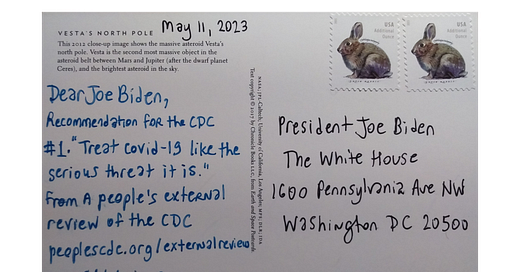 VESTA'S NORTH POLE
May 11, 2023
This 2012 close-up image shows the massive asteroid Vesta's
north pole. Vesta is the second most massive object in the
asteroid belt between Mars and Jupiter (after the dwarf planet
Ceres), and the brightest asteroid in the sky.
Dear Joe Biden,
Recommendation for the CDC
#1. "Treat covid-19 like the
serious threat it is."
From A people's external
review of the CDC
peoplescdc.org/externalreview
NASA/JPL-Caltech/University of California, Los Angeles/MPS/DLR/IDA
Text copyright © 2017 by Chronicle Books LLC, from Earth and Space Postcards
USA
Additional
Ounce
USA
Additional
Ounce
President Joe Biden
The White House
1600 Pennsylvania Ave NW
Washington DC 20500